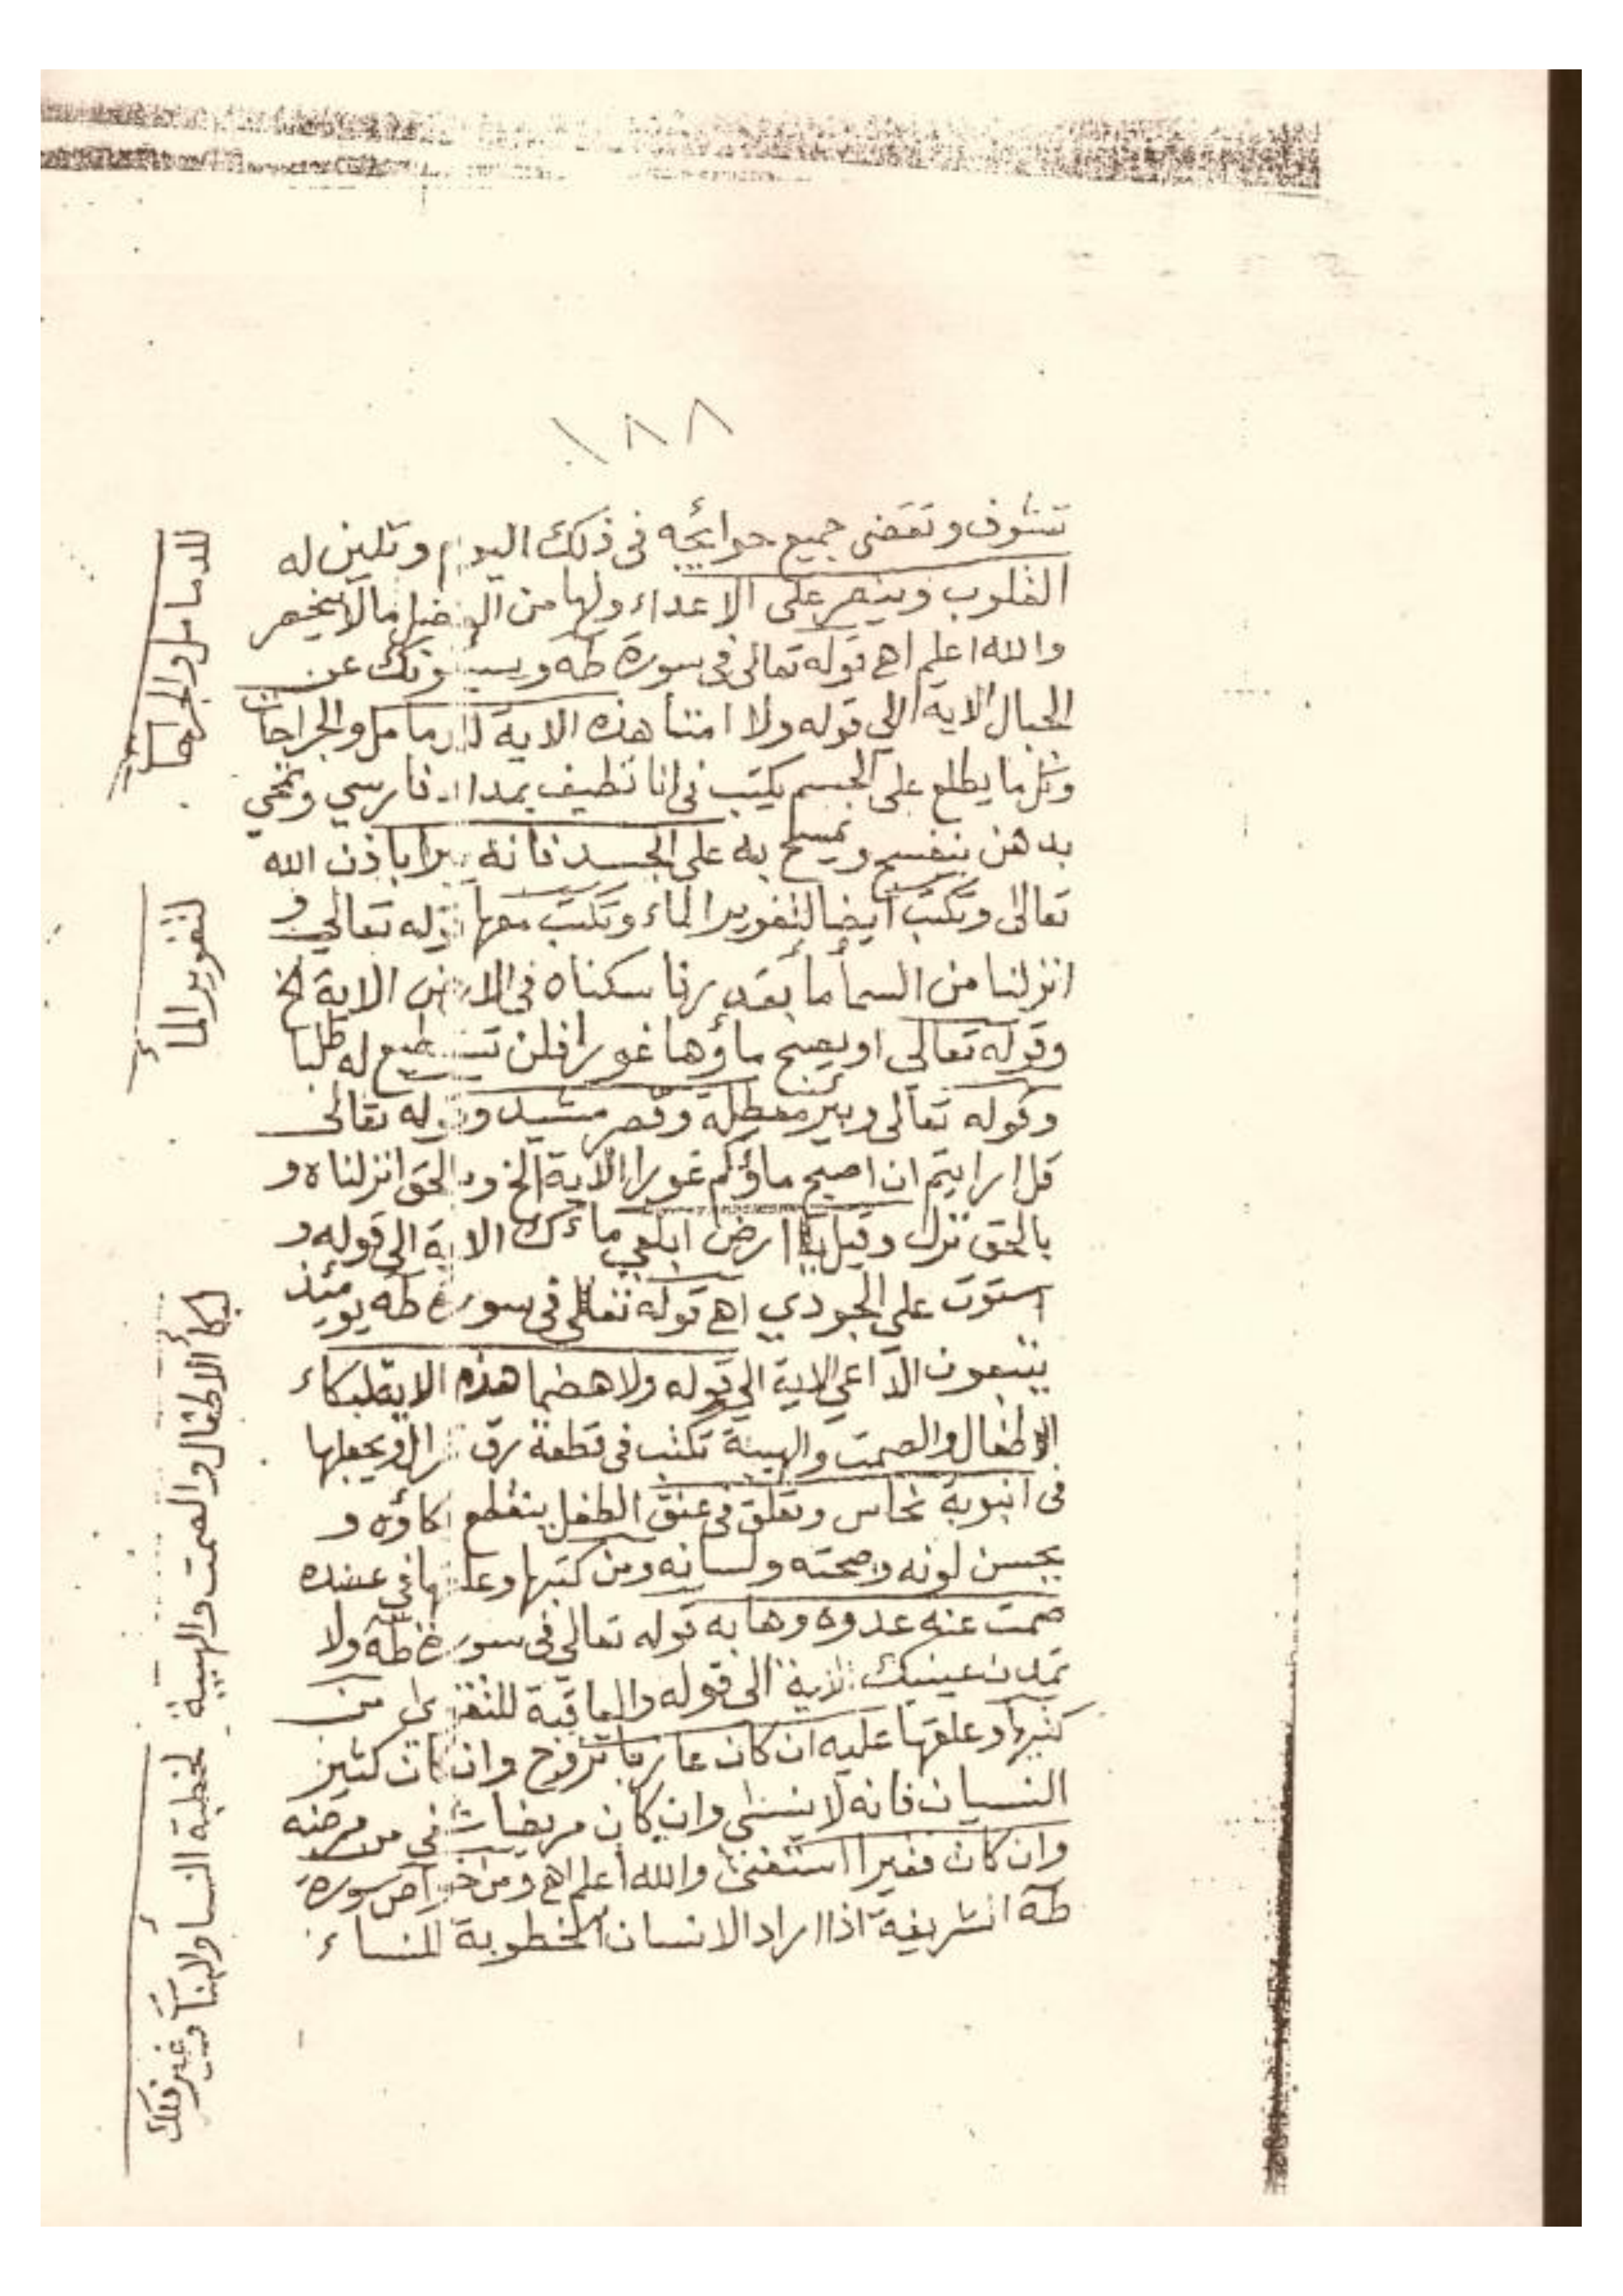 ١٨٨
تتشوف وتقضى جميع حوايجه فى ذلك اليوم وتلين له
القلوب وينصر على الاعداء ولها من الفضل ما لا ينحصر
والله اعلم اهـ قوله تعالى فى سورة طه ويسئلونك عن
الجبال الاية الى قوله ولا امتا هذه الاية للدمامل والجراحات
وكل ما يطلع على الجسم يكتب فى انا نظيف بمداد فارسي وتمحي
بدهن بنفسج ويمسح به على الجسد فانه يبرا باذن الله
تعالى وتكتب ايضا لتغوير الماء وتكتب معها قوله تعالى و
انزلنا من السما ما بقدر فاسكناه فى الارض الاية الخ
وقوله تعالى او يصبح ماؤها غورا فلن تستطيع له طلبا
وقوله تعالى وبير معطلة وقصر مشيد وقوله تعالى
قل ارايتم ان اصبح ماؤكم غورا الاية الخ وبالحق انزلناه و
بالحق نزل وقيل يا ارض ابلعي ماءك الاية الى قوله و
استوت على الجودي اهـ قوله تعالى فى سورة طه يومئذ
يتبعون الداعي الاية الى قوله ولا هضما هذه الاية لبكاء
الاطفال والصمت والهيبة تكتب فى قطعة رق غزال ويجعلها
فى انبوبة نحاس وتعلق فى عنق الطفل ينقطع بكاؤه و
يحسن لونه وصحته ولسانه ومن كتبها وعلقها في عضده
صمت عنه عدوه وهابه قوله تعالى فى سورة طه ولا
تمدن عينيك الاية الى قوله والعاقبة للتقوى من
كتبها وعلقها عليه ان كان عازبا تزوج وان كان كثير
النسيان فانه لا ينسى وان كان مريضا شفي من مرضه
وان كان فقيرا استغنى والله اعلم اهـ ومن خواص سورة
طه الشريفة اذا اراد الانسان الخطوبة للنساء
للدمامل والجراحات
لتغوير الماء
لبكاء الاطفال والصمت والهيبة
لخطبة النساء والبنات وغير ذلك